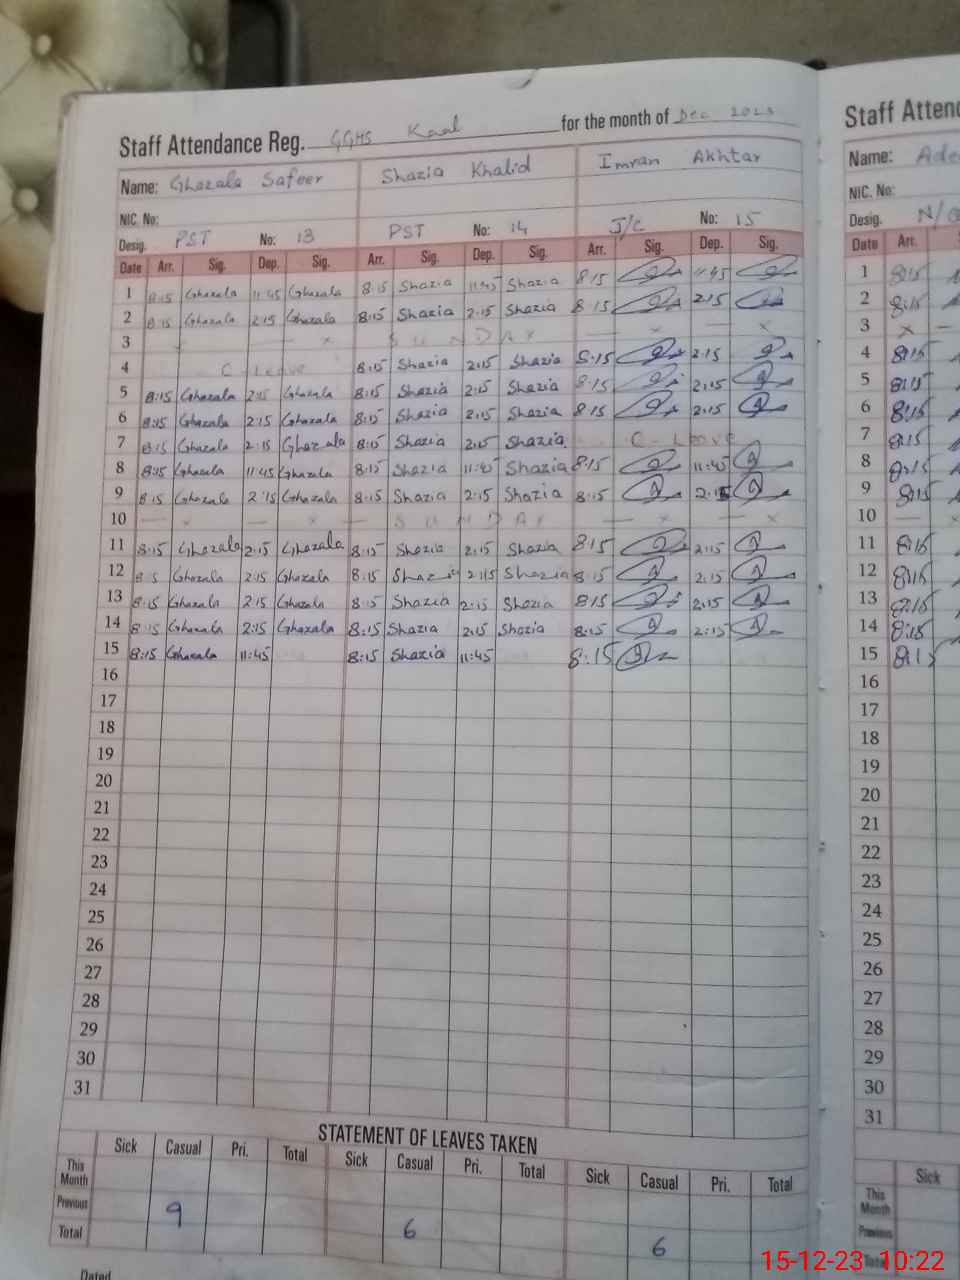 Staff Attendance Reg. GGHS Kaal for the month of Dec 2023
Name: Ghazala Safeer Shazia Khalid Imran Akhtar
NIC. No:
Desig. PST No: 13 PST No: 14 J/C No: 15
Date Arr. Sig. Dep. Sig. Arr. Sig. Dep. Sig. Arr. Sig. Dep. Sig.
1 8:15 Ghazala 11:45 Ghazala 8:15 Shazia 11:45 Shazia 8:15 11:45
2 8:15 Ghazala 2:15 Ghazala 8:15 Shazia 2:15 Shazia 8:15 2:15
3 x SUNDAY x — x
4 C-Leave 8:15 Shazia 2:15 Shazia 8:15 2:15
5 8:15 Ghazala 2:15 Ghazala 8:15 Shazia 2:15 Shazia 8:15 2:15
6 8:15 Ghazala 2:15 Ghazala 8:15 Shazia 2:15 Shazia 8:15 2:15
7 8:15 Ghazala 2:15 Ghazala 8:15 Shazia 2:15 Shazia C-Leave
8 8:15 Ghazala 11:45 Ghazala 8:15 Shazia 11:45 Shazia 8:15 11:45
9 8:15 Ghazala 2:15 Ghazala 8:15 Shazia 2:15 Shazia 8:15 2:15
10 — x — x — SUNDAY — x — x
11 8:15 Ghazala 2:15 Ghazala 8:15 Shazia 2:15 Shazia 8:15 2:15
12 8:15 Ghazala 2:15 Ghazala 8:15 Shazia 2:15 Shazia 8:15 2:15
13 8:15 Ghazala 2:15 Ghazala 8:15 Shazia 2:15 Shazia 8:15 2:15
14 8:15 Ghazala 2:15 Ghazala 8:15 Shazia 2:15 Shazia 8:15 2:15
15 8:15 Ghazala 11:45 8:15 Shazia 11:45 8:15
16
17
18
19
20
21
22
23
24
25
26
27
28
29
30
31
STATEMENT OF LEAVES TAKEN
Sick Casual Pri. Total Sick Casual Pri. Total Sick Casual Pri. Total
This Month
Previous 9 6 6
Total
Dated
Staff Attend
Name: Ade
NIC. No:
Desig. N/Q
Date Arr.
1 8:15
2 8:15
3 x —
4 8:15
5 8:15
6 8:15
7 8:15
8 8:15
9 8:15
10 — x
11 8:15
12 8:15
13 8:15
14 8:15
15 8:15
16
17
18
19
20
21
22
23
24
25
26
27
28
29
30
31
Sick
This Month
Previous
Total
15-12-23 10:22